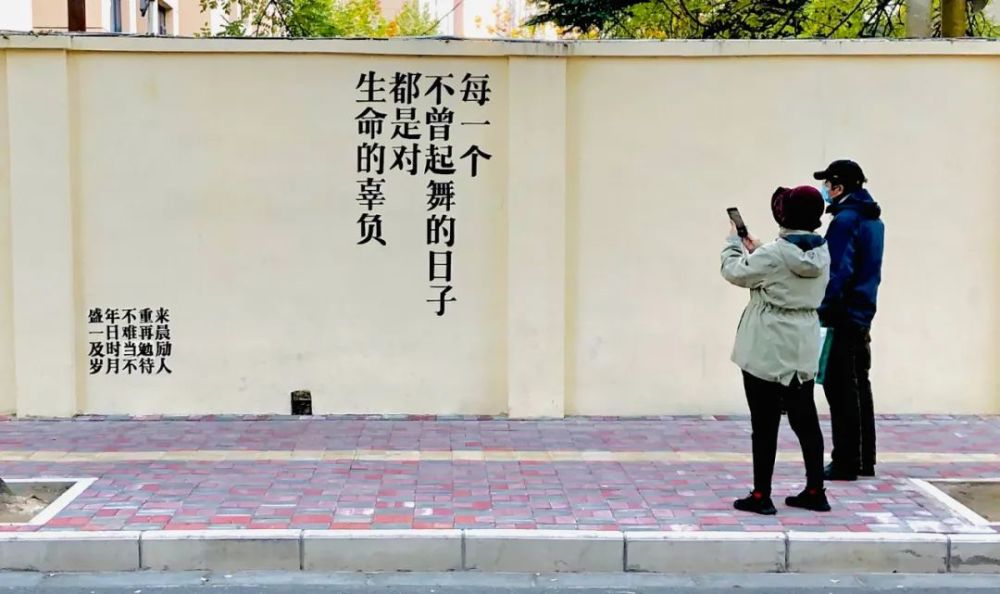 每一个
不曾起舞的日子
都是对
生命的辜负
盛年不重来
一日难再晨
及时当勉励
岁月不待人